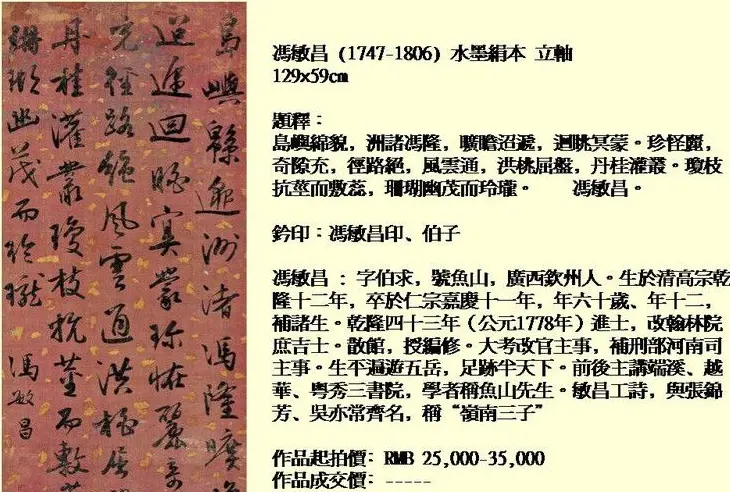 島嶼緜邈洲渚馮隆曠
迢遞迴眺冥蒙珍怪麗奇
充徑路絕風雲通洪桃屈
丹桂灌叢瓊枝抗莖而敷
珊瑚幽茂而玲瓏 馮敏昌
馮敏昌 (1747-1806) 水墨絹本 立軸
129x59cm
題釋：
島嶼綿貌，洲諸馮隆，曠瞻迢遞，迴眺冥蒙。珍怪麗，
奇隙充，徑路絕，風雲通，洪桃屈盤，丹桂灌叢。瓊枝
抗莖而敷蕊，珊瑚幽茂而玲瓏。 馮敏昌。
鈐印：馮敏昌印、伯子
馮敏昌 : 字伯求，號魚山，廣西欽州人。生於清高宗乾
隆十二年，卒於仁宗嘉慶十一年，年六十歲、年十二，
補諸生。乾隆四十三年（公元1778年）進士，改翰林院
庶吉士。散館，授編修。大考改官主事，補刑部河南司
主事。生平遍遊五岳，足跡半天下。前後主講端溪、越
華、粵秀三書院，學者稱魚山先生。敏昌工詩，與張錦
芳、吳亦常齊名，稱“嶺南三子”
作品起拍價: RMB 25,000-35,000
作品成交價: -----